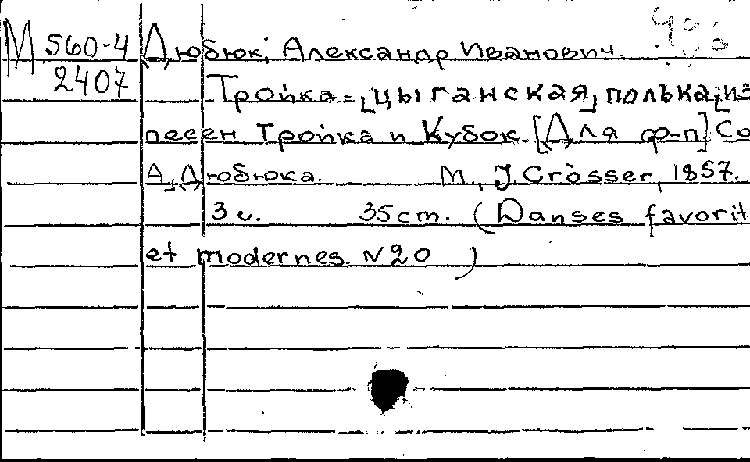 М 560-4
2407
Дюбюк, Александр Иванович.
Тройка-цыганская полька из
песен Тройка и Кубок. [Для ф-п] Со
А. Дюбюка. М., J. Grosser, 1857.
3 с. 35 cm. (Danses favorit
et modernes N 20 )